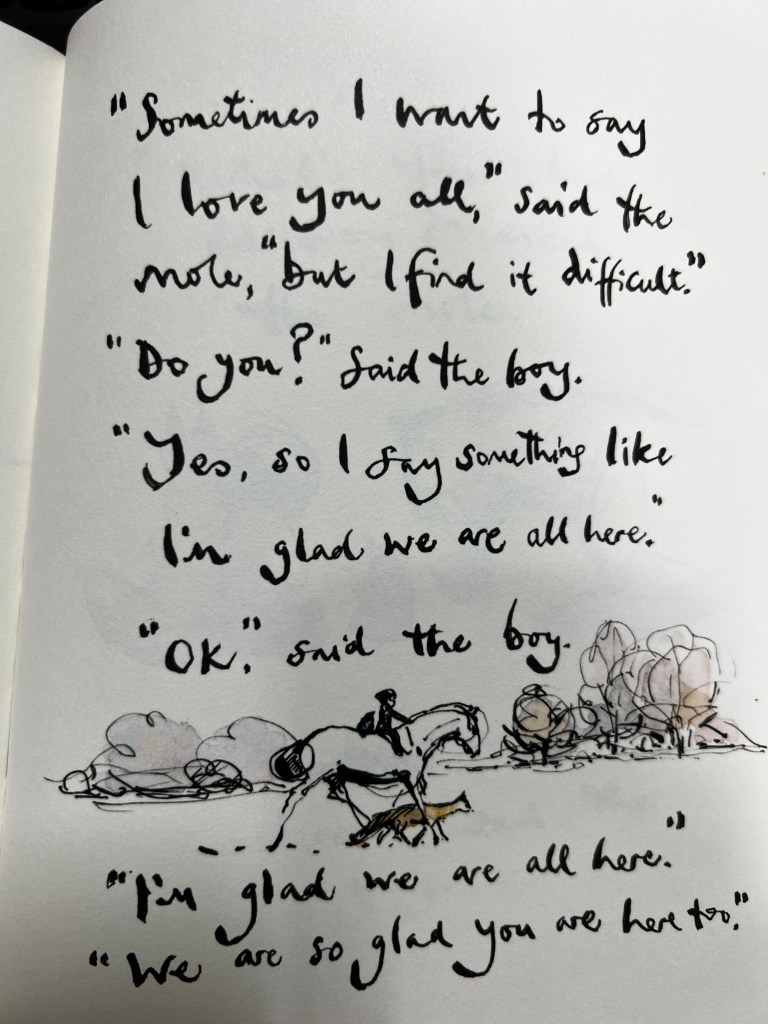 "Sometimes I want to say
I love you all," said the
mole, "but I find it difficult."
"Do you?" said the boy.
"Yes, so I say something like
I'm glad we are all here."
"OK." said the boy.
"I'm glad we are all here."
"We are so glad you are here too."